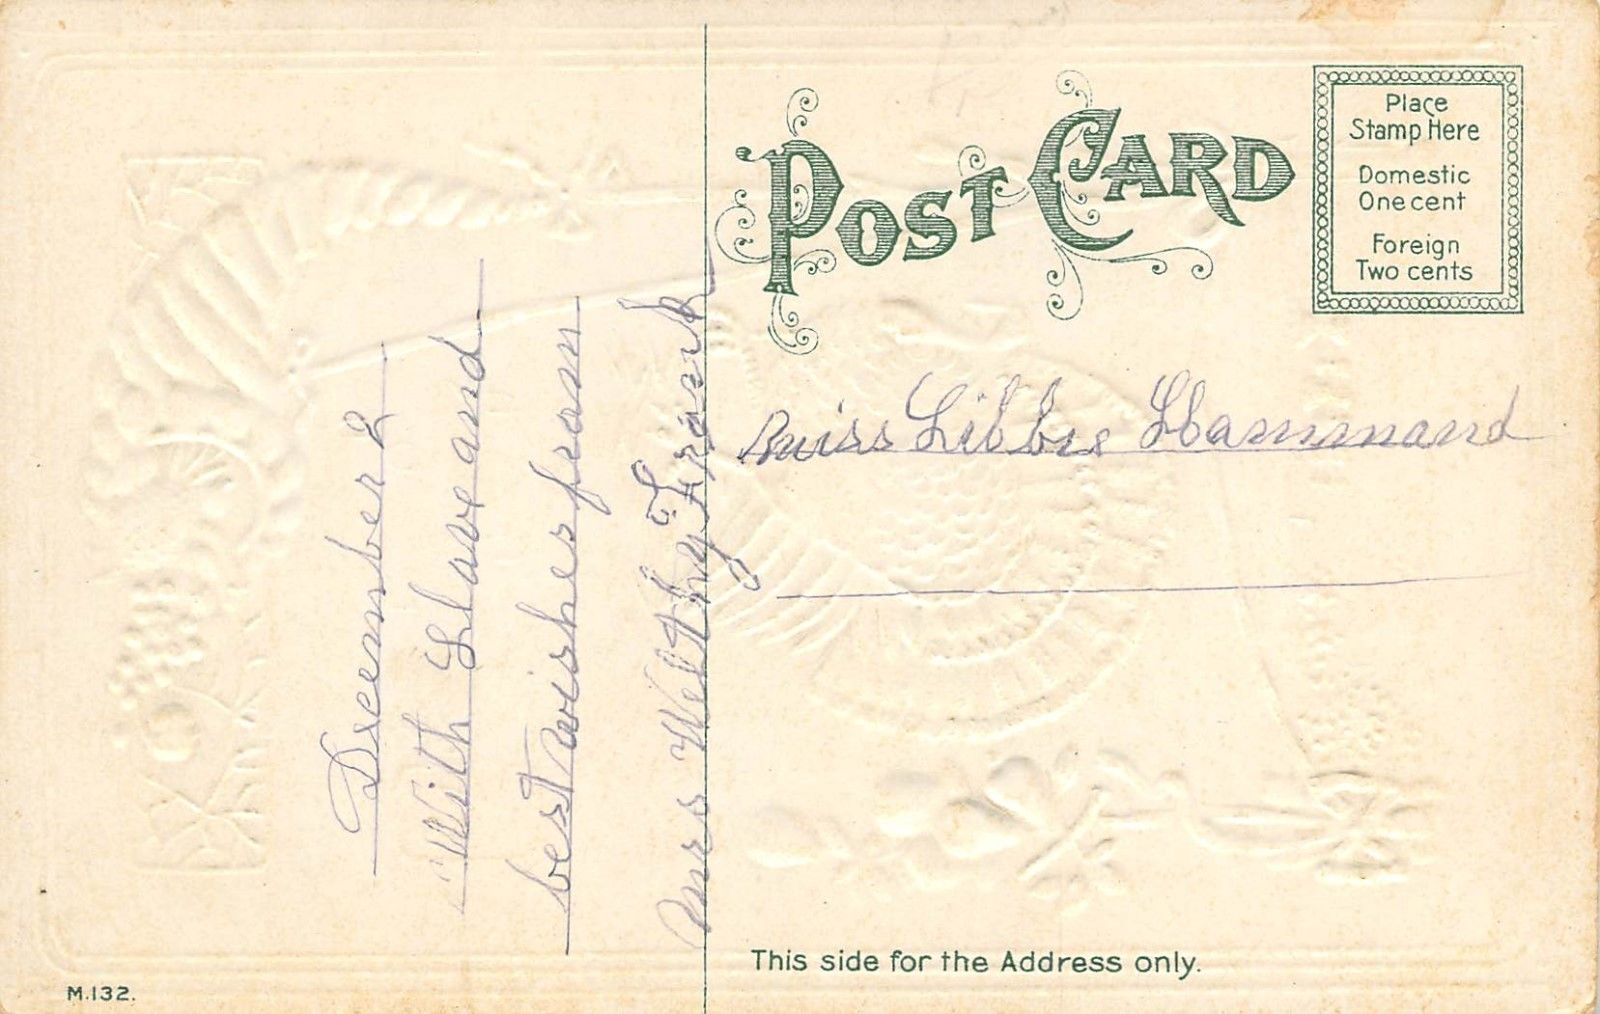 December 2
With Love and
best wishes from
Mrs Welthy E Frank
POST CARD
Place
Stamp Here
Domestic
One cent
Foreign
Two cents
Miss Libbie Hammond
This side for the Address only.
M.132.